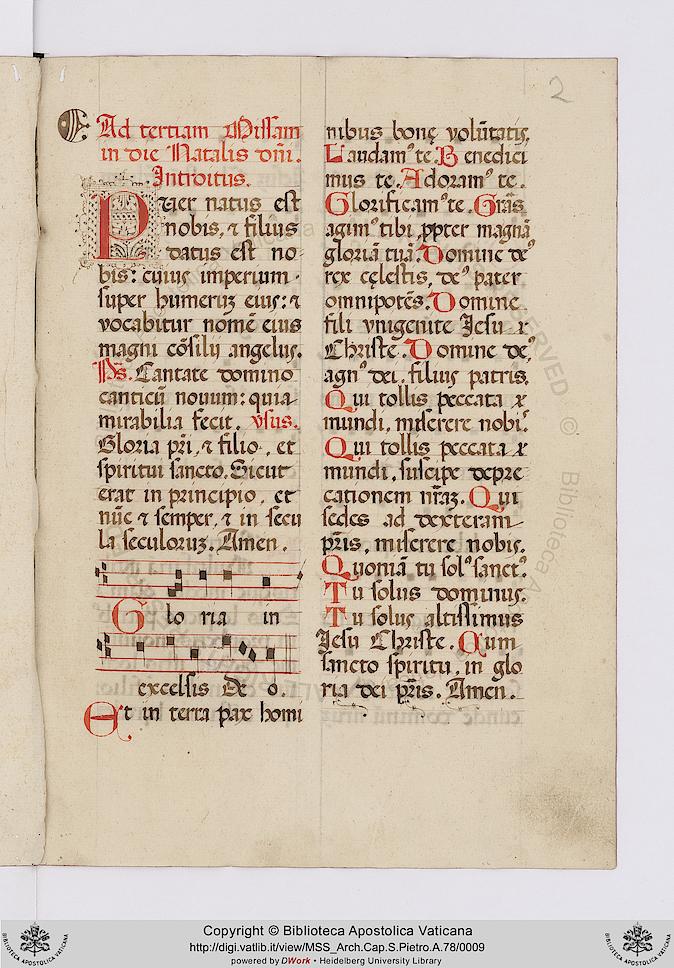 2
Ad tertiam Missam
in die Natalis dñi.
Introitus.
Puer natus est
nobis, ⁊ filius
datus est no
bis: cuius imperium
super humerum eius: ⁊
vocabitur nomē eius
magni cōsilij angelus.
Ps. Cantate domino
canticū nouum: quia
mirabilia fecit. vsus.
Gloria pri, ⁊ filio, et
spiritui sancto. Sicut
erat in principio, et
nūc ⁊ semper, ⁊ in secu
la seculorum. Amen.
Glo ria in
excelsis De o.
Et in terra pax homi
nibus bonę volūtatis.
Laudamꝰ te. Benedici
mus te. Adoramꝰ te.
Glorificamꝰ te. Grãs
agimꝰ tibi ꝓpter magnā
gloriā tuā. Domine deꝰ
rex cęlestis, deꝰ pater
omnipotēs. Domine
fili vnigenite Iesu
Christe. Domine deꝰ,
agnꝰ dei, filius patris.
Qui tollis peccata
mundi, miserere nobis.
Qui tollis peccata
mundi, suscipe depre
cationem nrãm. Qui
sedes ad dexteram
pris, miserere nobis.
Quoniā tu solꝰ sanctꝰ.
Tu solus dominus.
Tu solus altissimus
Iesu Christe. Cum
sancto spiritu, in glo
ria dei pris. Amen.
Copyright © Biblioteca Apostolica Vaticana
http://digi.vatlib.it/view/MSS_Arch.Cap.S.Pietro.A.78/0009
powered by DWork • Heidelberg University Library